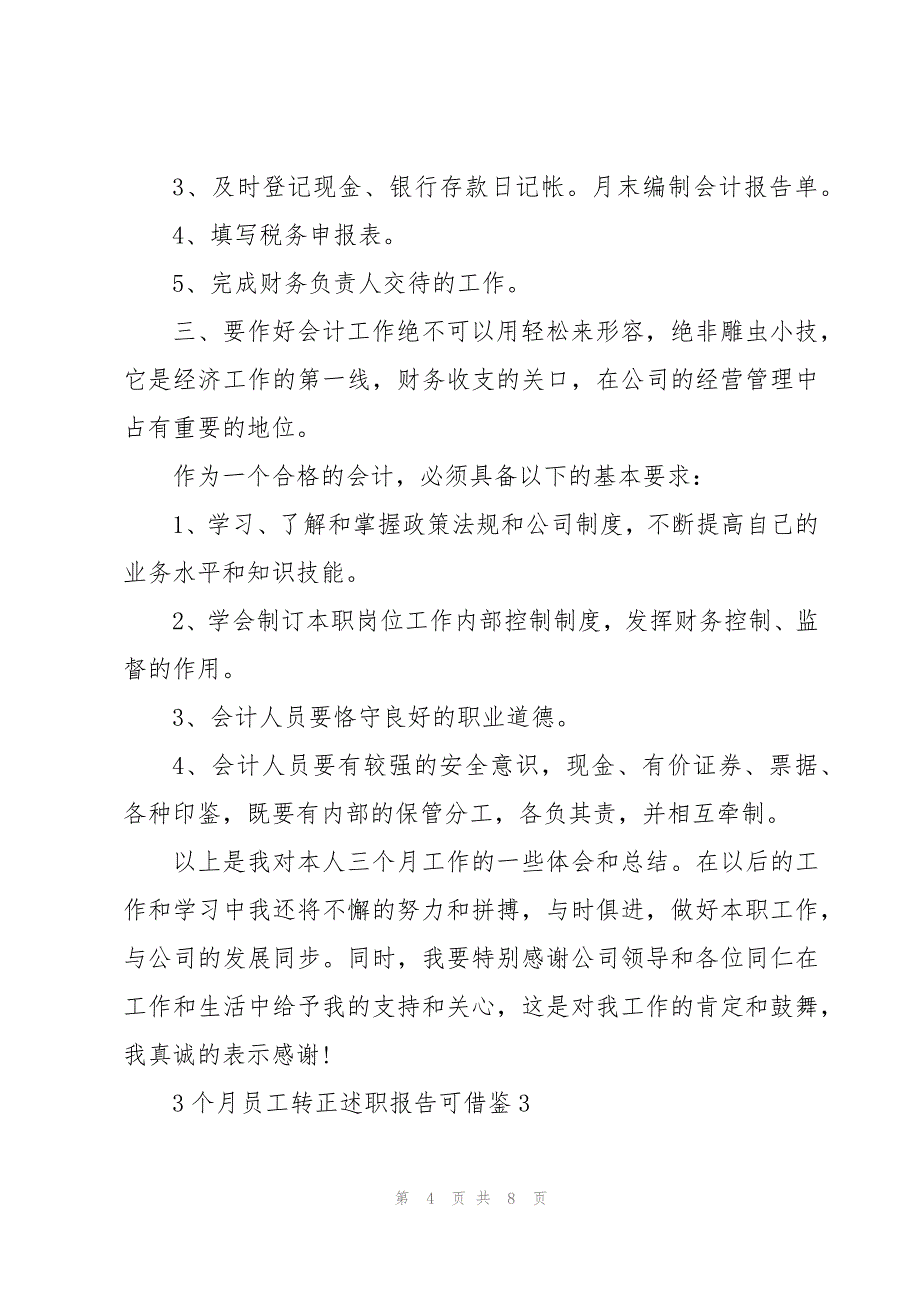 3、及时登记现金、银行存款日记帐。月末编制会计报告单。
4、填写税务申报表。
5、完成财务负责人交待的工作。
三、要作好会计工作绝不可以用轻松来形容，绝非雕虫小技，
它是经济工作的第一线，财务收支的关口，在公司的经营管理中
占有重要的地位。
作为一个合格的会计，必须具备以下的基本要求：
1、学习、了解和掌握政策法规和公司制度，不断提高自己的
业务水平和知识技能。
2、学会制订本职岗位工作内部控制制度，发挥财务控制、监
督的作用。
3、会计人员要恪守良好的职业道德。
4、会计人员要有较强的安全意识，现金、有价证券、票据、
各种印鉴，既要有内部的保管分工，各负其责，并相互牵制。
以上是我对本人三个月工作的一些体会和总结。在以后的工
作和学习中我还将不懈的努力和拼搏，与时俱进，做好本职工作，
与公司的发展同步。同时，我要特别感谢公司领导和各位同仁在
工作和生活中给予我的支持和关心，这是对我工作的肯定和鼓舞，
我真诚的表示感谢!
3个月员工转正述职报告可借鉴3
第 4 页 共 8 页